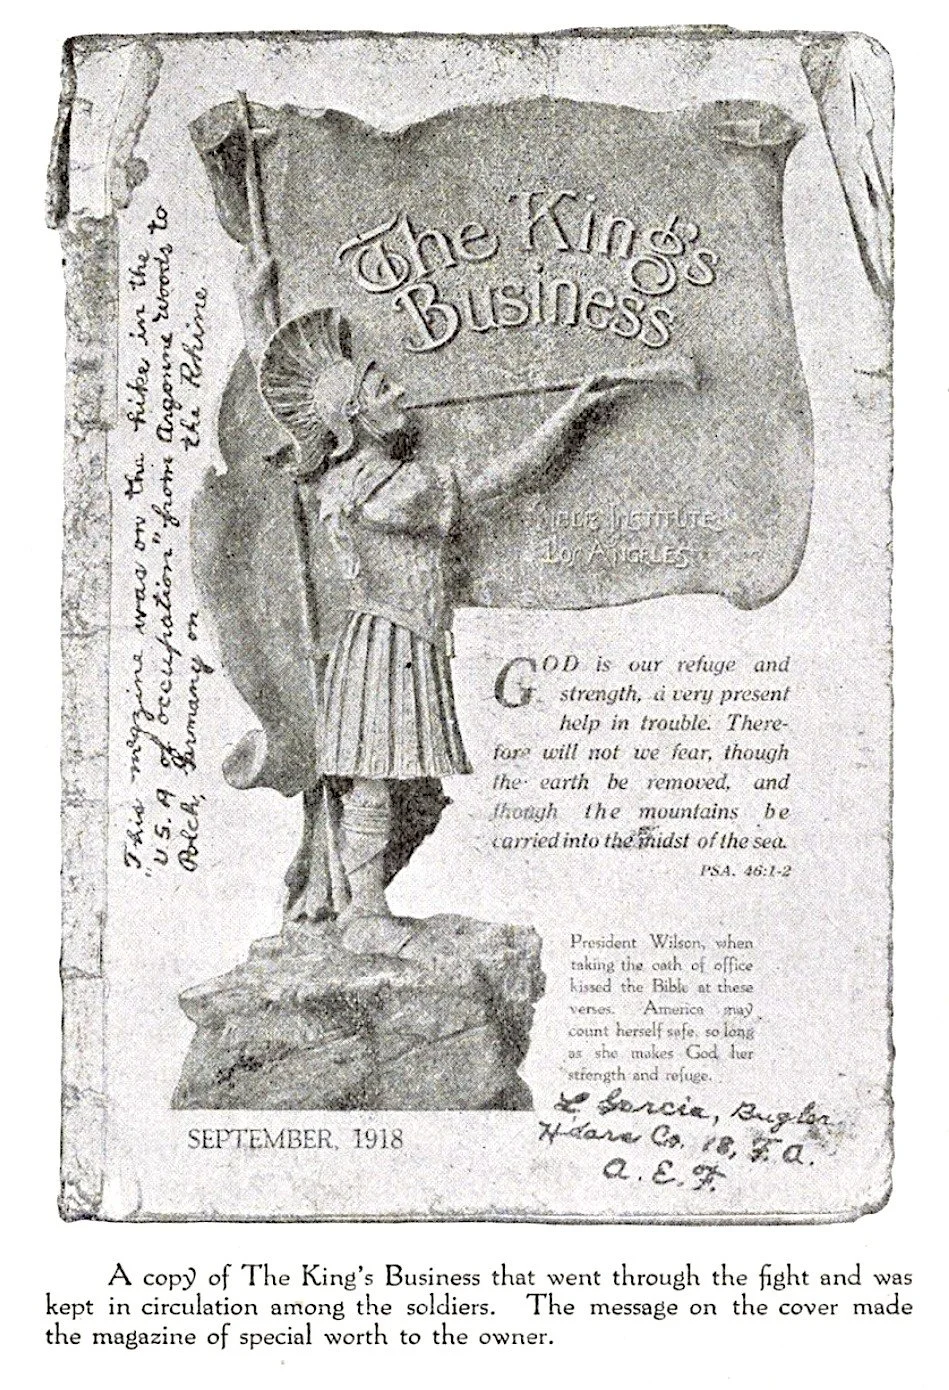 The King's
Business
BIBLE INSTITUTE
LOS ANGELES
This magzine was on the hike in the
"U.S. A of occupation" from Argonne Woods to
Polch, Germany on the Rhine
GOD is our refuge and
strength, a very present
help in trouble. There-
fore will not we fear, though
the earth be removed, and
though the mountains be
carried into the midst of the sea.
PSA. 46:1-2
President Wilson, when
taking the oath of office
kissed the Bible at these
verses. America may
count herself safe, so long
as she makes God her
strength and refuge.
L. Garcia, Bugler
Co. 18, F.A.
A.E.F.
SEPTEMBER, 1918
A copy of The King's Business that went through the fight and was
kept in circulation among the soldiers. The message on the cover made
the magazine of special worth to the owner.